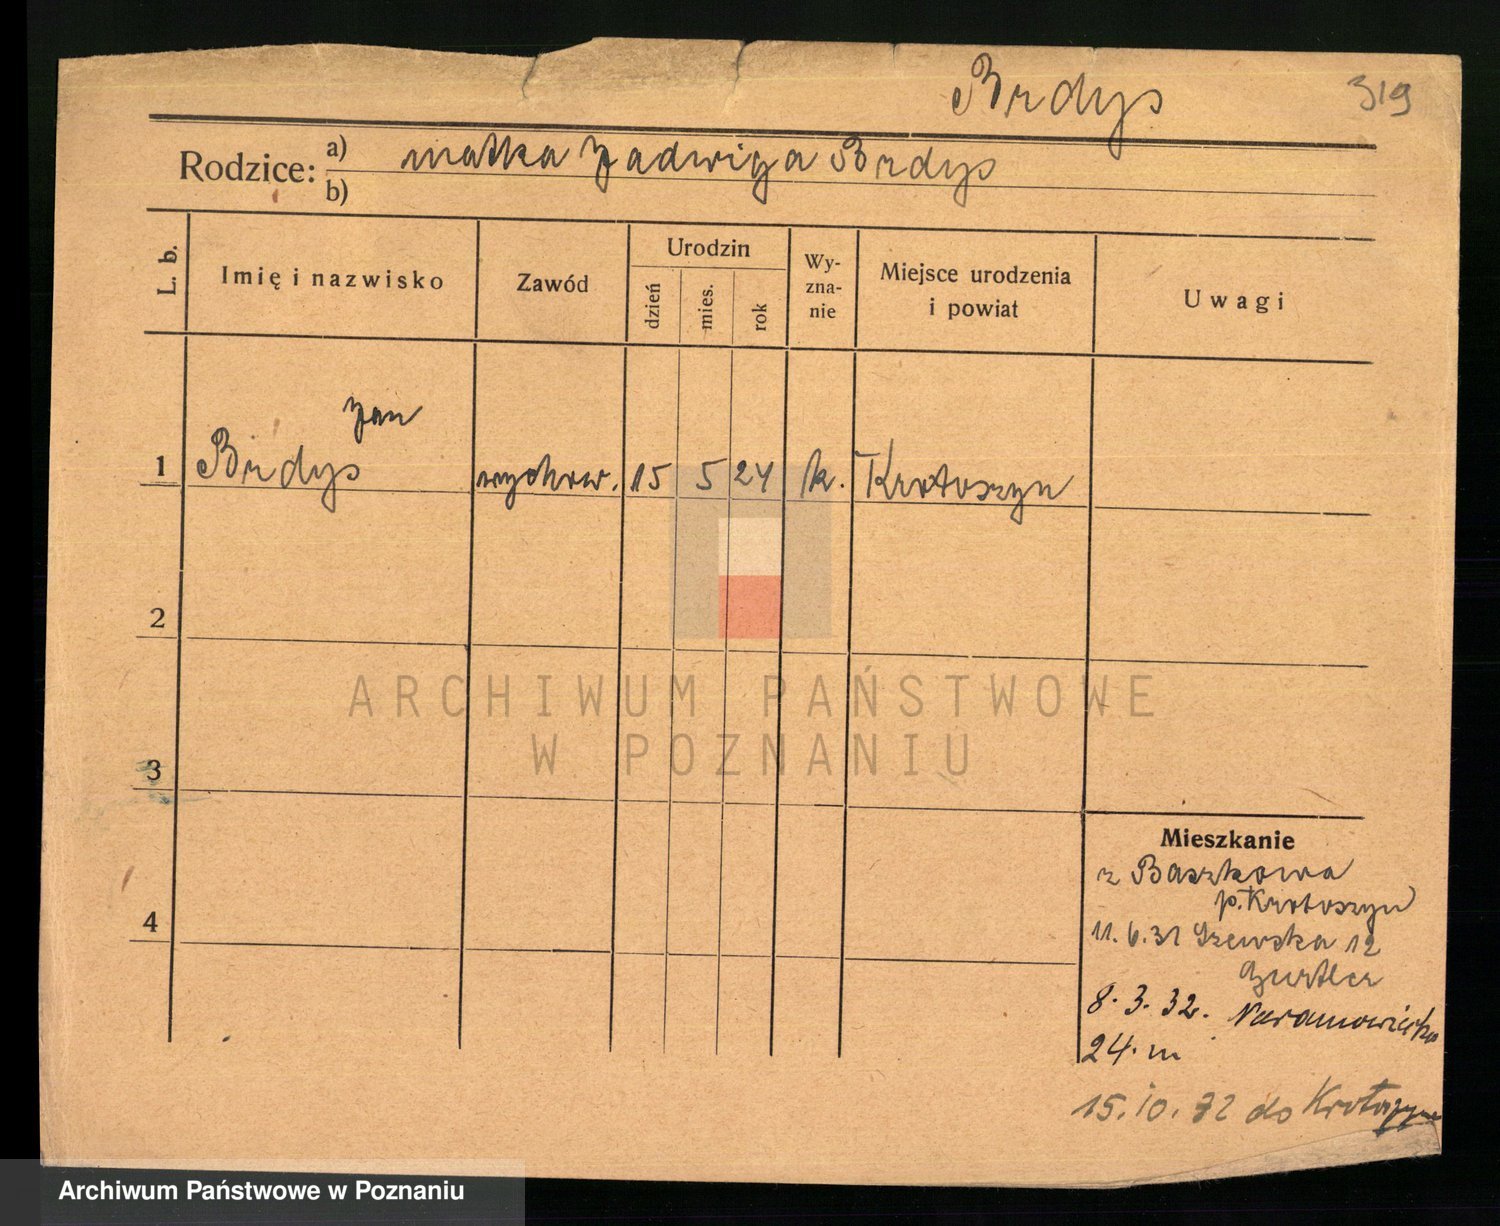 Brdys 319
Rodzice: a) matka Jadwiga Brdys
b)
L. b. Imię i nazwisko Zawód Urodzin dzień mies. rok Wyznanie Miejsce urodzenia i powiat Uwagi
Jan
1 Brdys wychow. 15 5 24 k. Krotoszyn
2
ARCHIWUM PAŃSTWOWE
W POZNANIU
3
4
Mieszkanie
z Baszkowa
p. Krotoszyn
11. 6. 31 Szewska 12
8. 3. 32. Naramowicka
24. m
15. 10. 32 do Krotoszyna
Archiwum Państwowe w Poznaniu